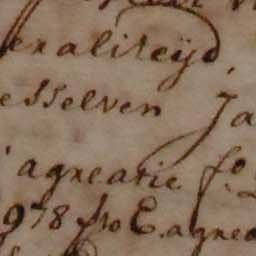 eraliteijd,
esselven Ja
agreatie fo
978 fro E. agrea